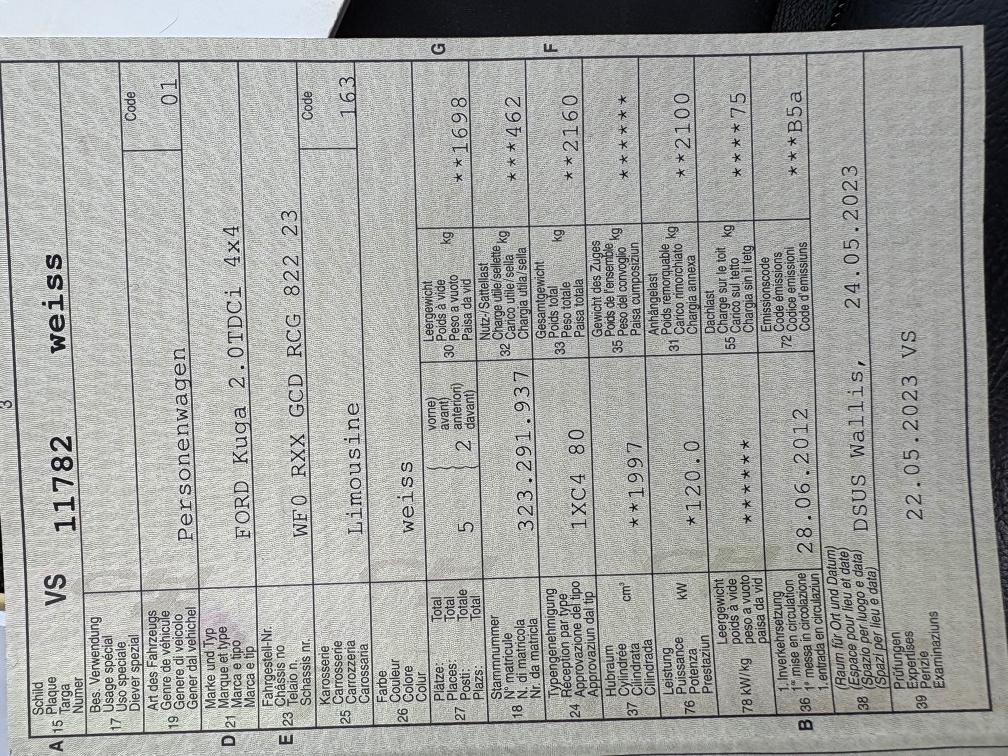 3
A 15 Schild
Plaque
Targa
Numer
VS 11782 weiss
17 Bes. Verwendung
Usage spécial
Uso speciale
Diever spezial
Code
19 Art des Fahrzeugs
Genre de véhicule
Genere di veicolo
Gener dal vehichel
Personenwagen
01
D 21 Marke und Typ
Marque et type
Marca e tipo
Marca e tip
FORD Kuga 2.0TDCi 4x4
E 23 Fahrgestell-Nr.
Châssis no
Telaio n.
Schassis nr.
WF0 RXX GCD RCG 822 23
25 Karosserie
Carrosserie
Carrozzeria
Carossaria
Limousine
Code
163
26 Farbe
Couleur
Colore
Colur
weiss
27 Plätze:
Places:
Posti:
Plazs:
Total
Total
Totale
Total
5
2
vorne)
avant)
anteriori)
davant)
18 Stammnummer
N° matricule
N. di matricola
Nr. da matricla
323.291.937
24 Typengenehmigung
Réception par type
Approvazione del tipo
Approvaziun dal tip
1XC4 80
37 Hubraum
Cylindrée
Cilindrata
Cilindrada
cm³
**1997
76 Leistung
Puissance
Potenza
Prestaziun
kW
*120.0
78 kW/kg
Leergewicht
poids à vide
peso a vuoto
paisa da vid
******
B 36 1.Inverkehrsetzung
1re mise en circulation
1a messa in circolazione
1. entrada en circulaziun
28.06.2012
G
30 Leergewicht
Poids à vide
Peso a vuoto
Paisa da vid
kg
**1698
32 Nutz-/Sattellast
Charge utile/sellette
Carico utile/sella
Chargia utila/sella
kg
***462
F
33 Gesamtgewicht
Poids total
Peso totale
Paisa totala
kg
**2160
35 Gewicht des Zuges
Poids de l'ensemble
Peso del convoglio
Paisa cumposiziun
kg
******
31 Anhängelast
Poids remorquable
Carico rimorchiato
Chargia annexa
kg
**2100
55 Dachlast
Charge sur le toit
Carico sul tetto
Chargia sin il tetg
kg
****75
72 Emissionscode
Code émissions
Codice emissioni
Code d'emissiuns
***B5a
38 (Raum für Ort und Datum)
(Espace pour lieu et date)
(Spazio per luogo e data)
(Spazi per lieu e data)
DSUS Wallis, 24.05.2023
39 Prüfungen
Expertises
Perizie
Examinaziuns
22.05.2023 VS